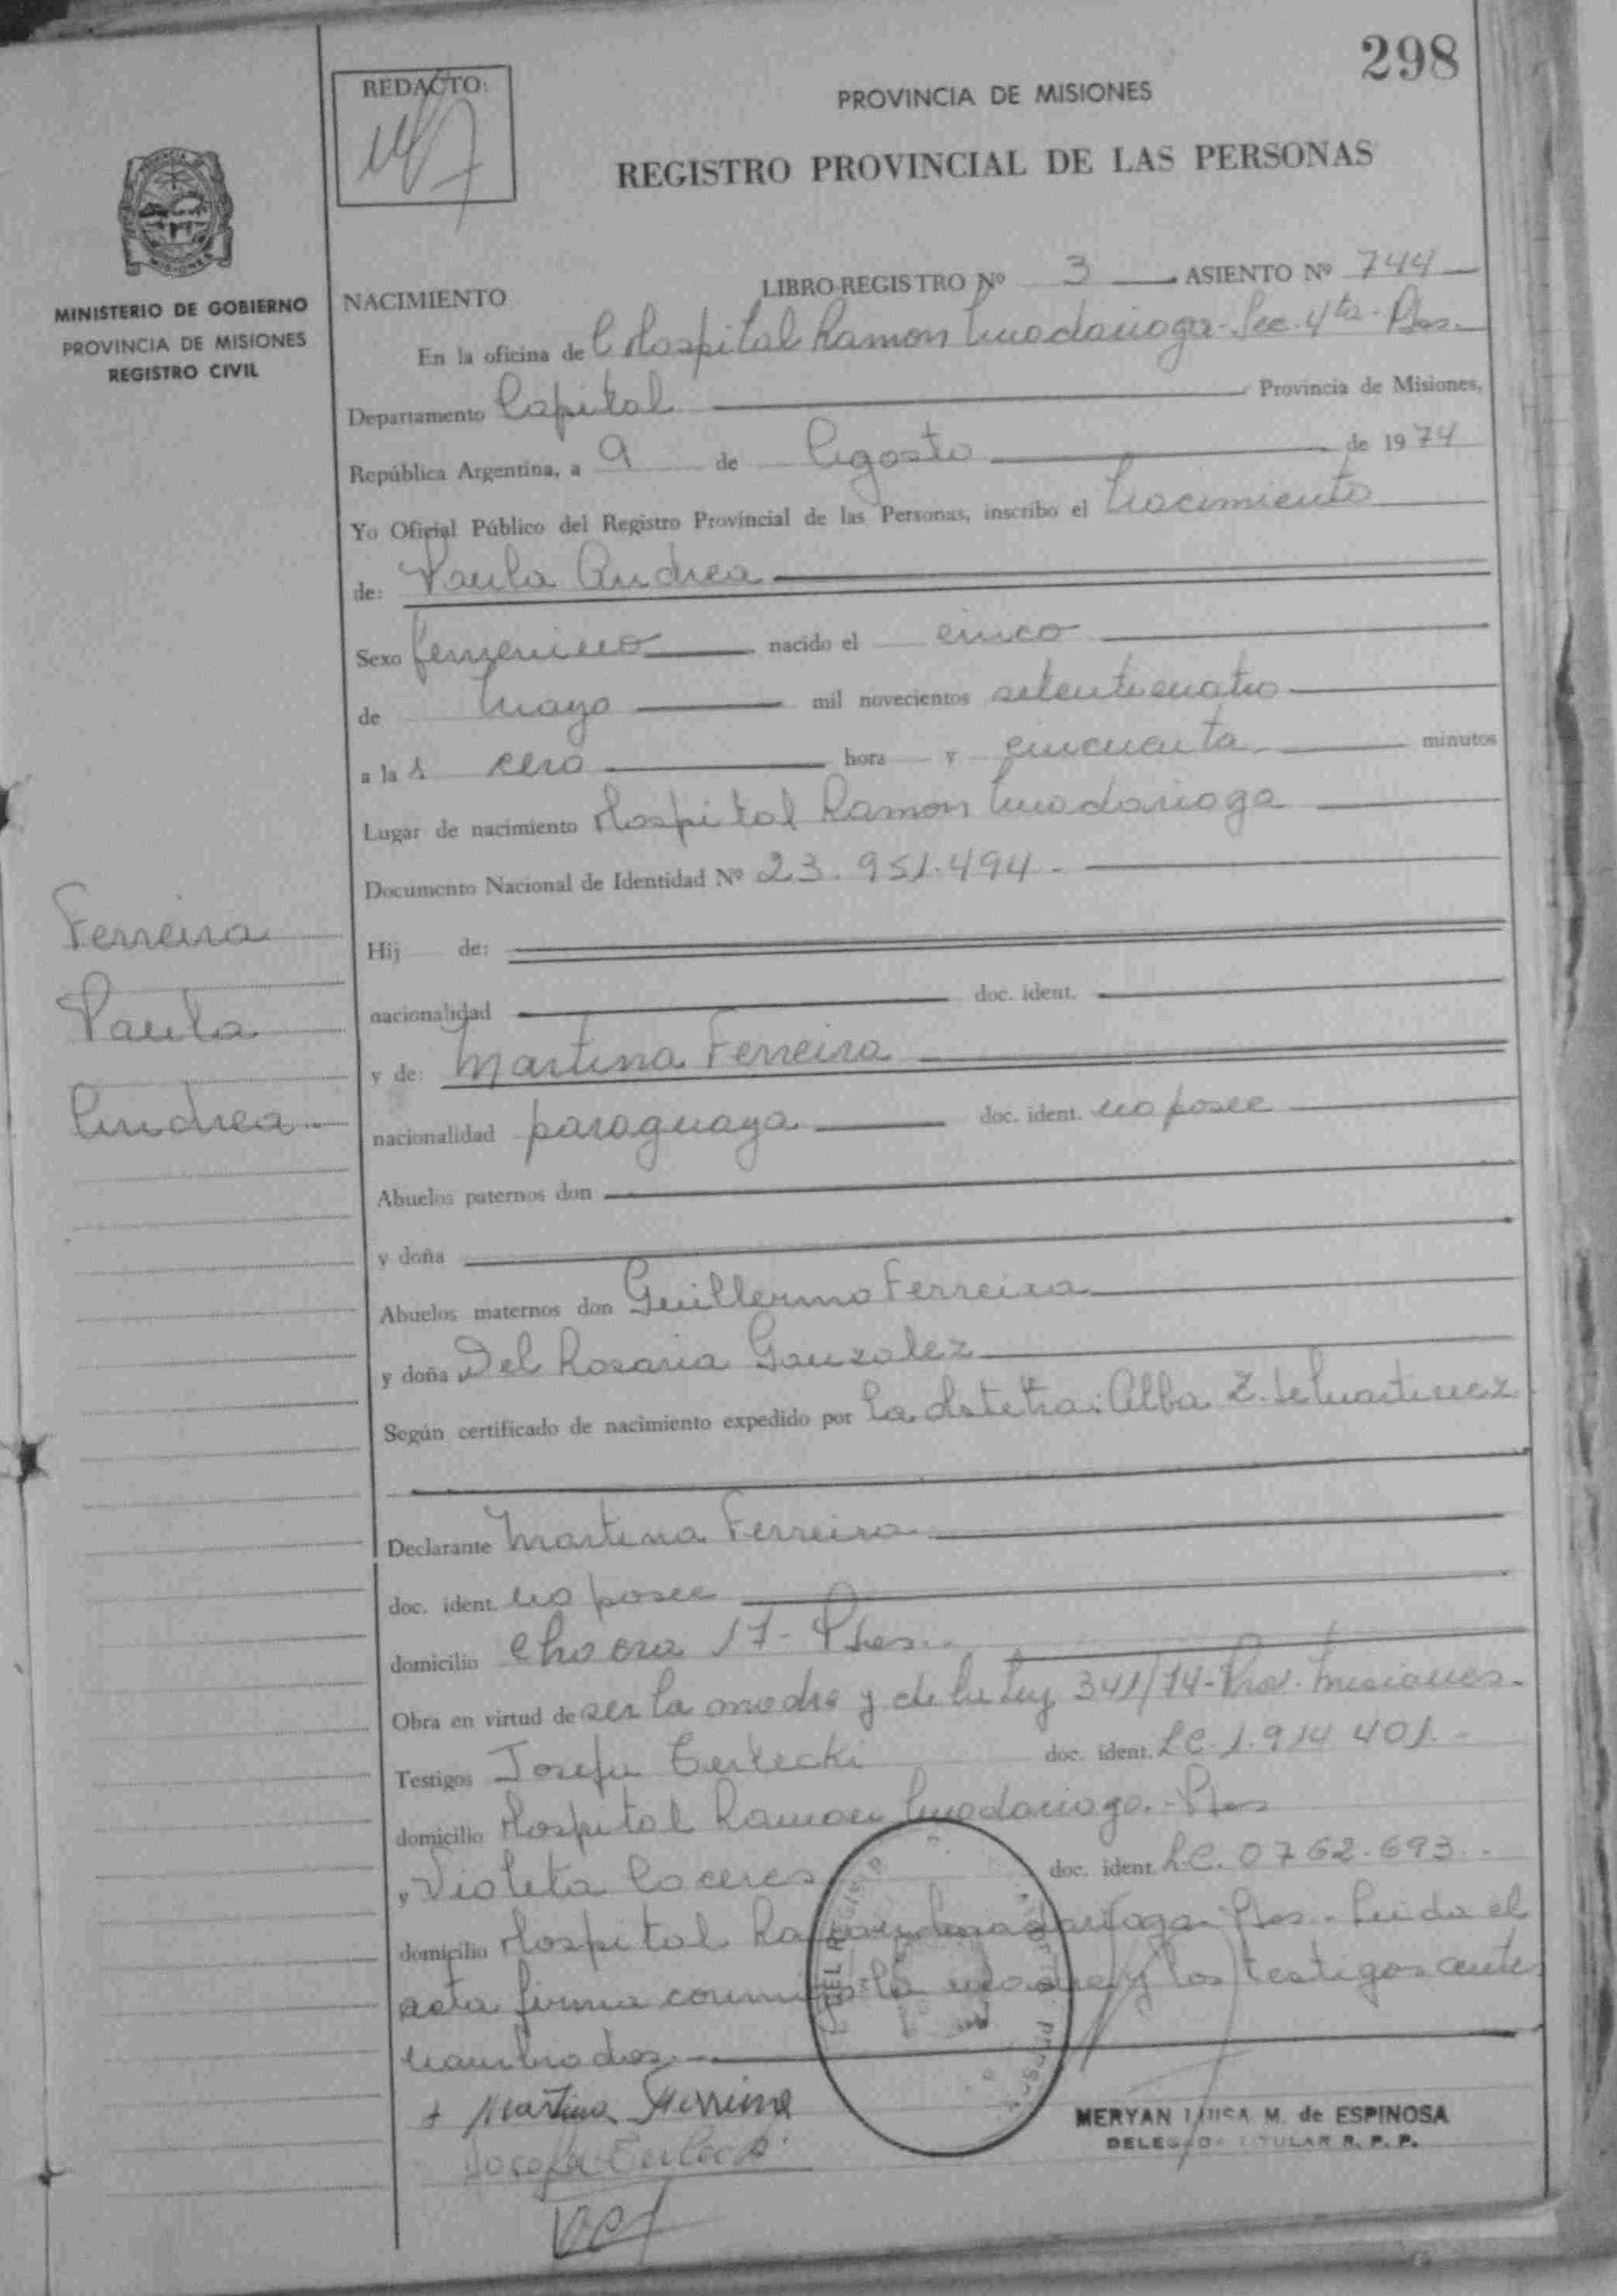 298
REDACTO:
PROVINCIA DE MISIONES
REGISTRO PROVINCIAL DE LAS PERSONAS
MISIONES
MINISTERIO DE GOBIERNO
PROVINCIA DE MISIONES
REGISTRO CIVIL
NACIMIENTO LIBRO-REGISTRO Nº 3 ASIENTO Nº 744
En la oficina de Hospital Ramon Madariaga - Sec. 4ta - Pdas.
Departamento Capital Provincia de Misiones,
República Argentina, a 9 de Agosto de 1974
Yo Oficial Público del Registro Provincial de las Personas, inscribo el nacimiento
de: Paula Andrea
Sexo femenino nacido el cinco
de mayo mil novecientos setenticuatro
a las cero hora y cincuenta minutos
Lugar de nacimiento Hospital Ramon Madariaga
Documento Nacional de Identidad Nº 23.951.494.-
Ferreira
Paula
Andrea.-
Hij de:
nacionalidad doc. ident.
y de: Martina Ferreira
nacionalidad paraguaya doc. ident. no posee
Abuelos paternos don
y doña
Abuelos maternos don Guillermo Ferreira
y doña Del Rosaria Gonzalez
Según certificado de nacimiento expedido por la obstetra: Alba Z. de Martinez
Declarante Martina Ferreira
doc. ident. no posee
domicilio Chacra 17 - Pdas.
Obra en virtud de ser la madre y de la ley 341/74 - Prov. Misiones.-
Testigos Josefa Terlecki doc. ident. L.C. 1.914.401.-
domicilio Hospital Ramon Madariaga.- Pdas
y Violeta Caceres doc. ident. L.C. 0762.693.-
domicilio Hospital Ramon Madariaga - Pdas. - Leida el
acta firma conmigo la madre y los testigos ante
nombrados.-
+ Martina Ferreira
Josefa Terlecki
MERYAN LUISA M. de ESPINOSA
DELEGADA TITULAR R. P. P.